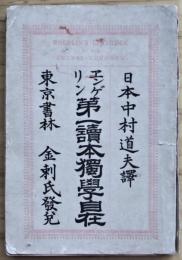 日本中村道夫譯
エンゲリン第一讀本獨學自在
東京書林 金刺氏發兌